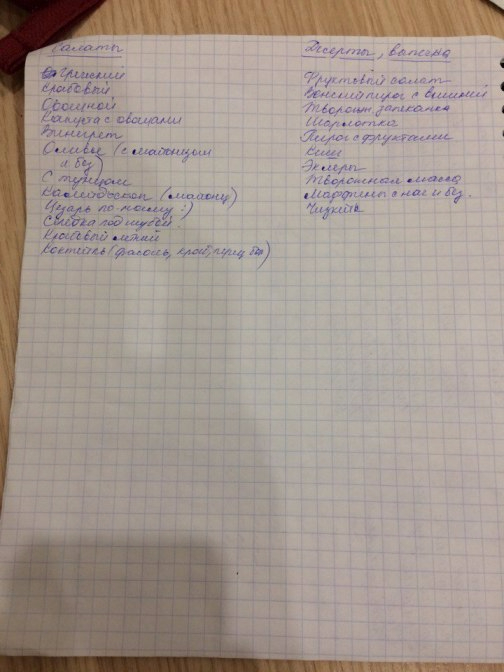 Салаты
Греческий
Крабовый
Овощной
Капуста с овощами
Винегрет
Оливье (с майонезом
и без)
С тунцом
Калейдоскоп (майонез)
Цезарь по-нашему :)
Селедка под шубой
Крабовый легкий
Коктейль (фасоль, краб, перец бол)
Десерты, выпечка
Фруктовый салат
Венский пирог с вишней
Творожн. запеканка
Шарлотка
Пирог с фруктами
Киш
Эклеры
Творожная масса
Маффины с нач и без.
Чизкейк